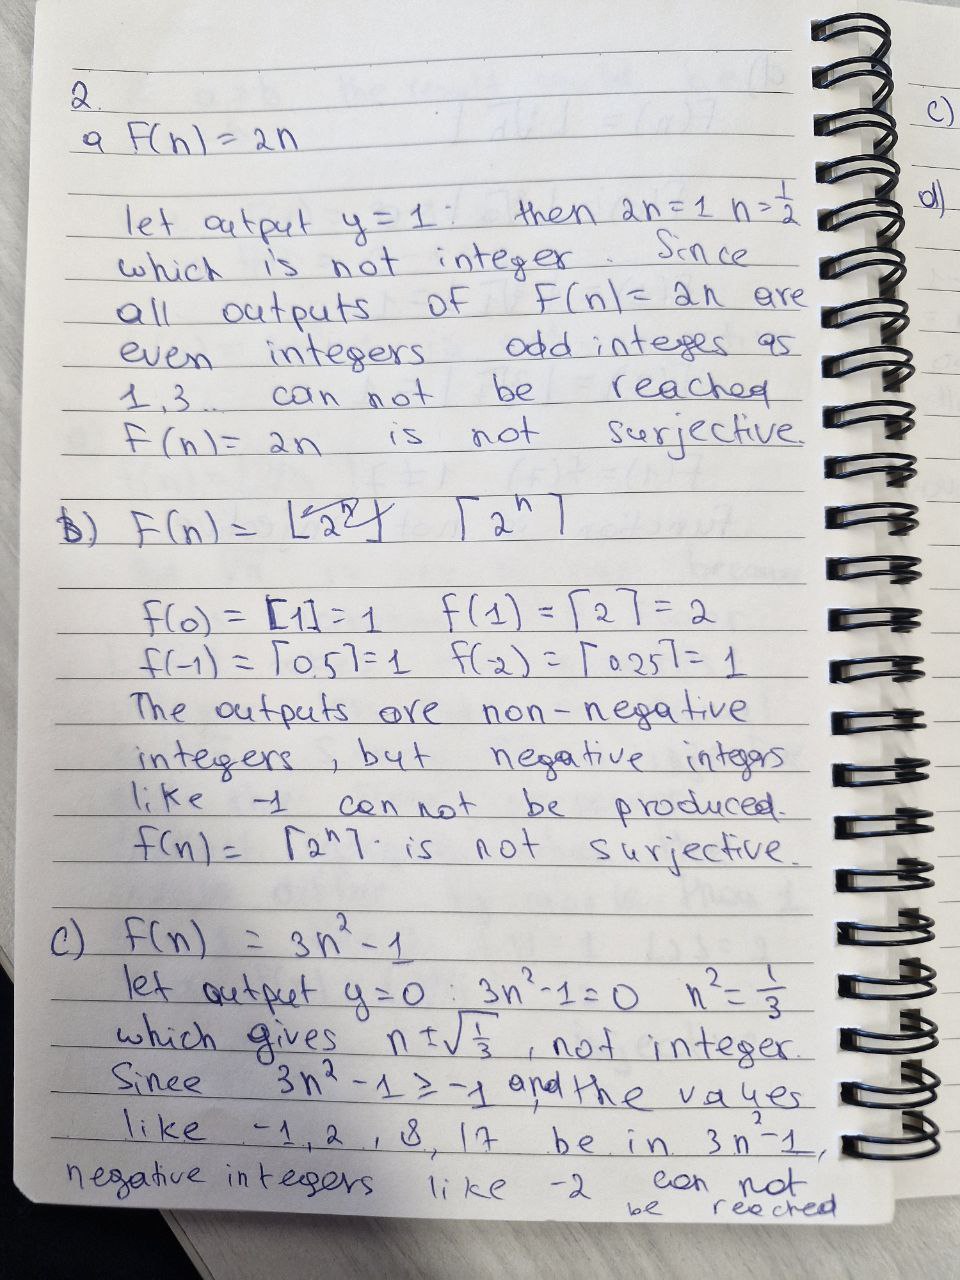 2.
a F(n) = 2n
let output y = 1 : then 2n = 1 n = 1/2
which is not integer. Since
all outputs OF F(n) = 2n are
even integers odd integes as
1,3.. can not be reached
F(n) = 2n is not surjective.
b) F(n) = ⌊2ⁿ⌋ ⌈2ⁿ⌉
f(0) = ⌈1⌉ = 1 f(1) = ⌈2⌉ = 2
f(-1) = ⌈0.5⌉ = 1 f(-2) = ⌈0.25⌉ = 1
The outputs are non-negative
integers, but negative integers
like -1 can not be produced.
f(n) = ⌈2ⁿ⌉. is not surjective.
c) F(n) = 3n² - 1
let output y = 0 : 3n² - 1 = 0 n² = 1/3
which gives n ± √1/3, not integer.
Since 3n² - 1 ≥ -1 and the values
like -1, 2, 8, 17 be in 3n² - 1,
negative integers like -2 can not
be reached
c)
d)